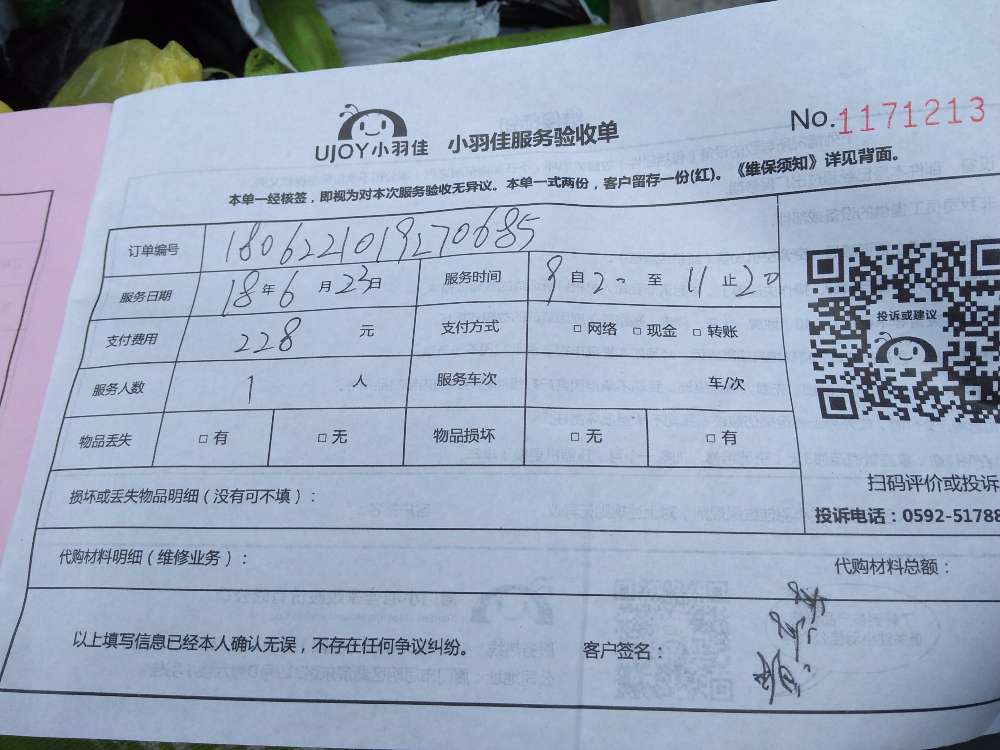 UJOY小羽佳 小羽佳服务验收单 No.1171213
本单一经核签，即视为对本次服务验收无异议。本单一式两份，客户留存一份(红)。《维保须知》详见背面。
订单编号 180622101927068​5
服务日期 18年6月23日 服务时间 9自20至11止20
支付费用 228 元 支付方式 □网络 □现金 □转账
投诉或建议
服务人数 1 人 服务车次 车/次
物品丢失 □有 □无 物品损坏 □无 □有
扫码评价或投诉
损坏或丢失物品明细（没有可不填）：
投诉电话：0592-51788
代购材料明细（维修业务）： 代购材料总额：
以上填写信息已经本人确认无误，不存在任何争议纠纷。 客户签名：